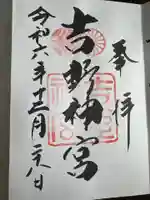 奉拝
吉野神宮
令和六年十二月二八日